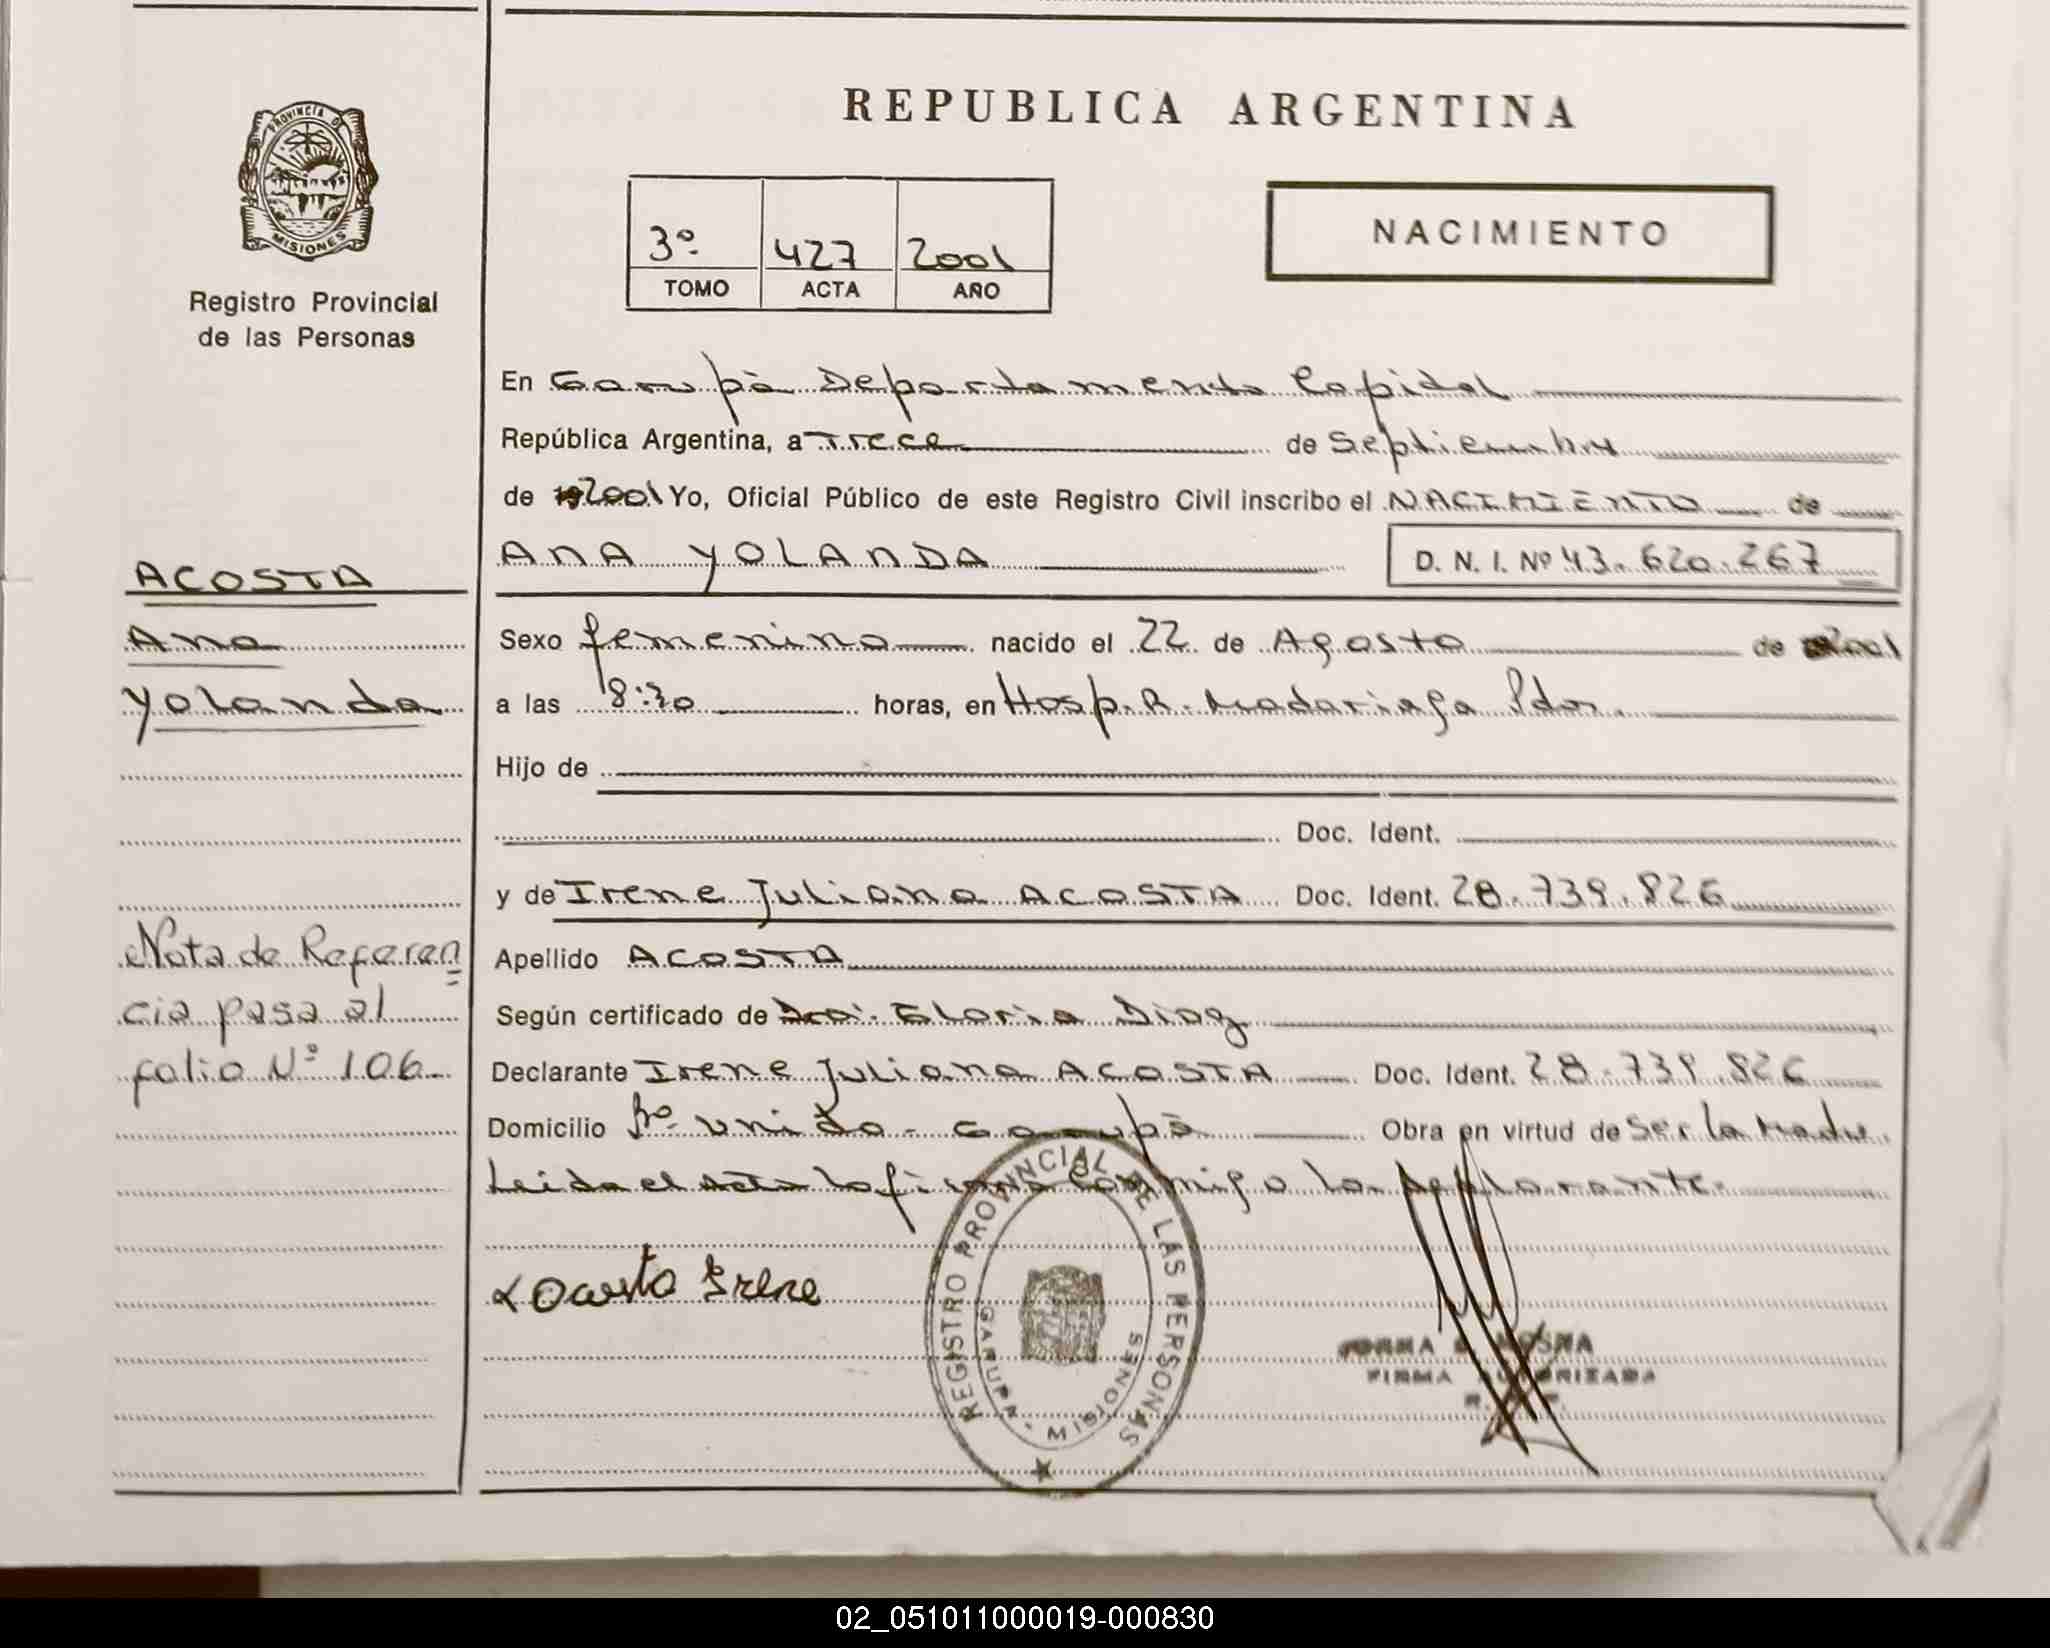 REPUBLICA ARGENTINA
PROVINCIA DE
MISIONES
Registro Provincial
de las Personas
3º 427 2001
TOMO ACTA AÑO
NACIMIENTO
En Garupá Departamento Capital
República Argentina, a Trece de Septiembre
de 2001 Yo, Oficial Público de este Registro Civil inscribo el NACIMIENTO de
ANA YOLANDA D. N. I. Nº 43.620.267
ACOSTA
Ana
Yolanda
Sexo femenino nacido el 22 de Agosto de 2001
a las 8:30 horas, en Hosp. R. Madariaga Pdas.
Hijo de
Doc. Ident.
y de Irene Juliana ACOSTA Doc. Ident. 28.739.826
Nota de Referen
cia pasa al
folio Nº 106
Apellido ACOSTA
Según certificado de Dra. Gloria Diaz
Declarante Irene Juliana ACOSTA Doc. Ident. 28.739.826
Domicilio Bº Unido - Garupá Obra en virtud de Ser la Madre.
Leida el acta la firma conmigo la declarante.
Acosta Irene
REGISTRO PROVINCIAL DE LAS PERSONAS
GARUPA - MISIONES
FIRMA AUTORIZADA
02_051011000019-000830